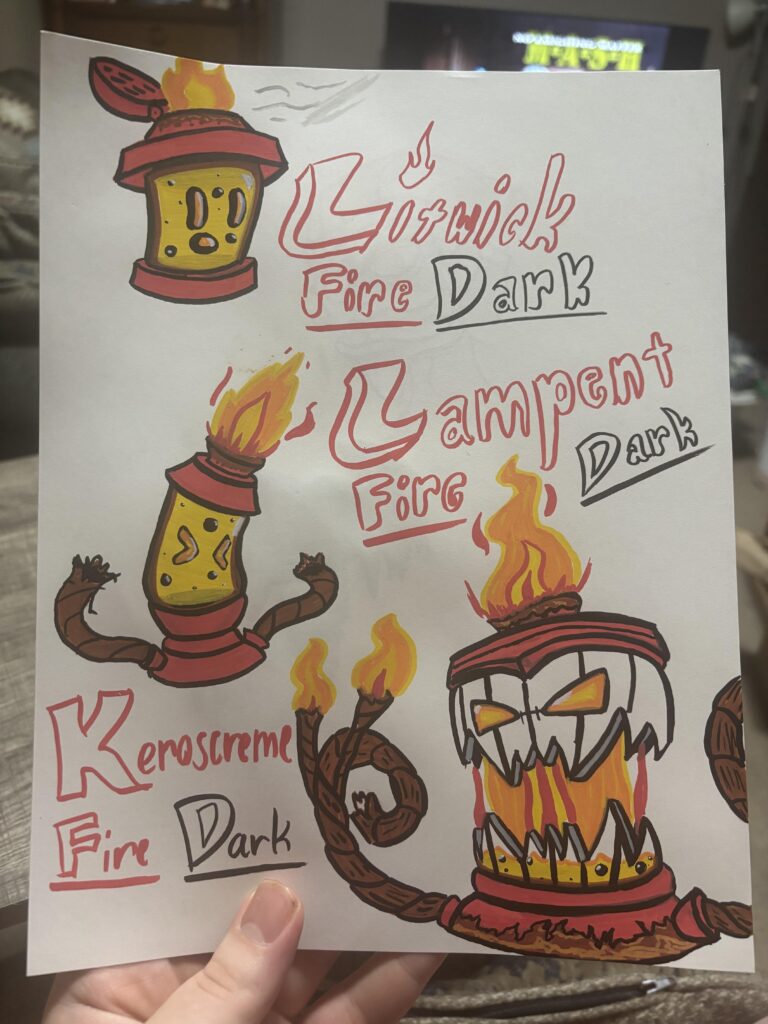 M*A*S*H
Litwick
Fire Dark
Lampent
Fire Dark
Keroscreme
Fire Dark